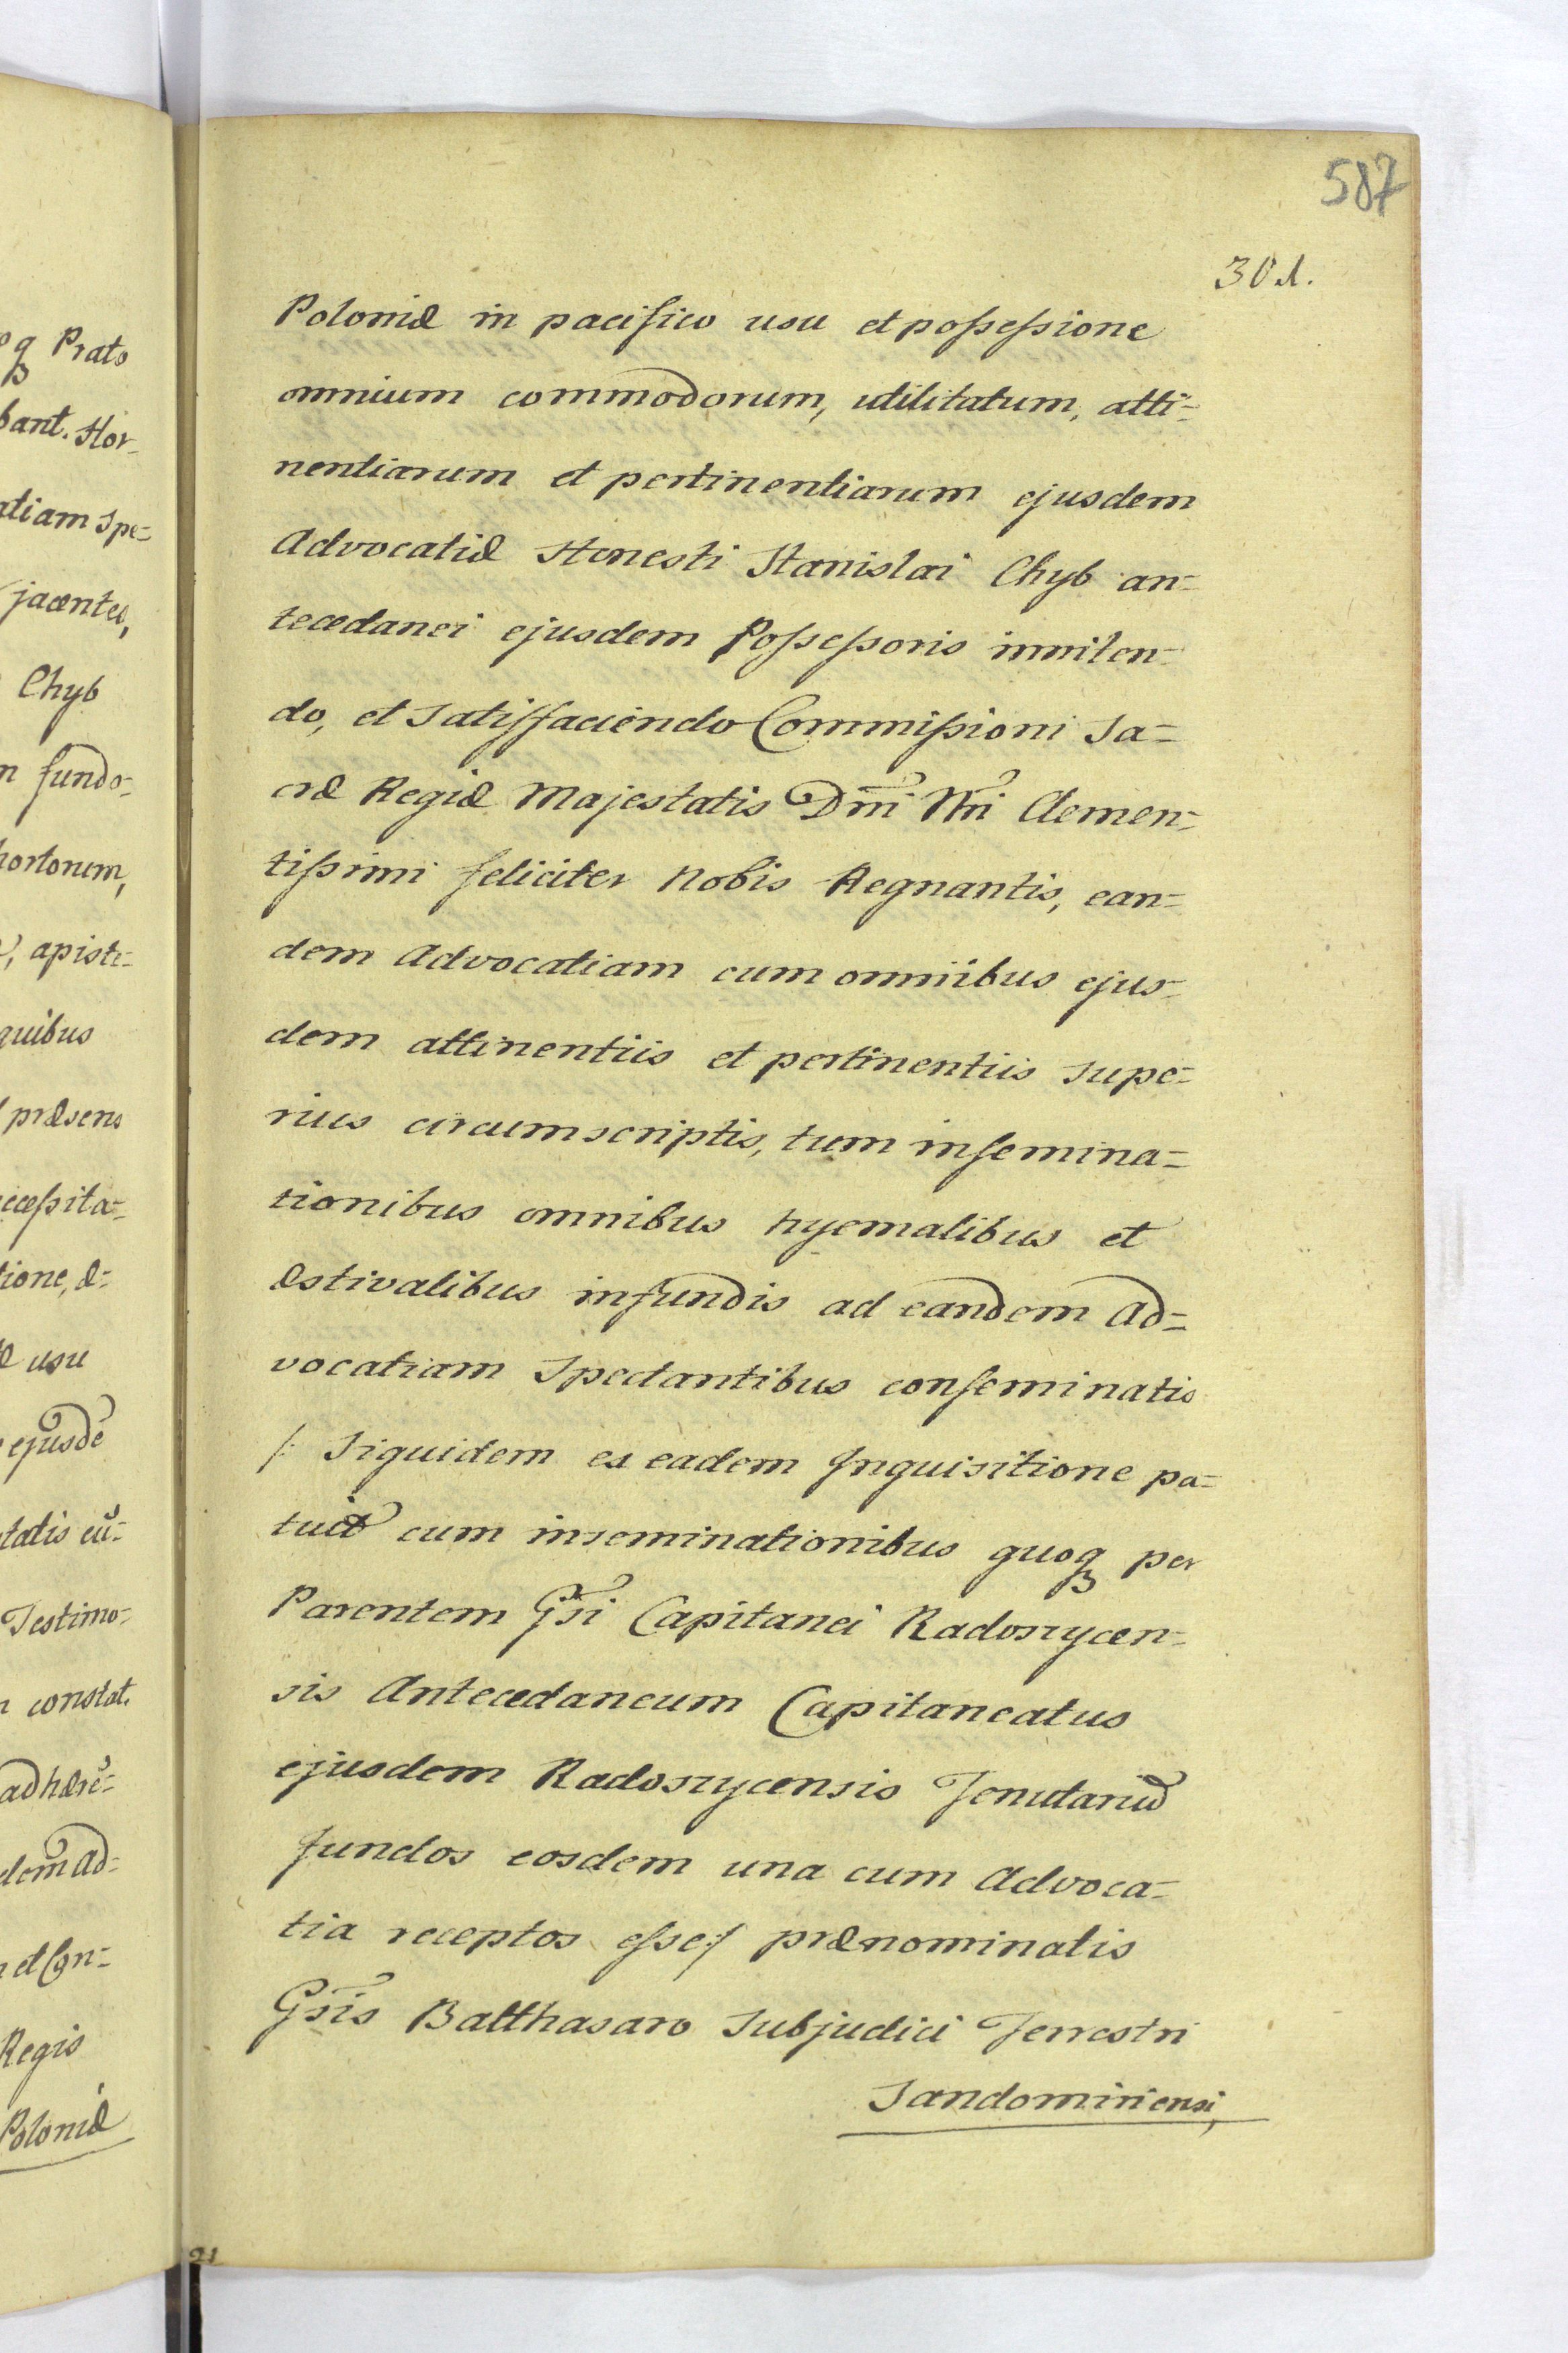 587
301.
Poloniæ in pacifico usu et possessione
omnium commodorum, utilitatum, atti=
nentiarum et pertinentiarum ejusdem
Advocatiæ Honesti Stanislai Chyb an=
tecedanei ejusdem Possessoris inniten=
do, et Satisfaciendo Commissioni Sa=
cræ Regiæ Majestatis Dni Nri Clemen=
tissimi feliciter Nobis Regnantis, ean=
dem Advocatiam cum omniibus ejus=
dem attinentiis et pertinentiis supe=
rius circumscriptis, tum insemina=
tionibus omnibus hyemalibus et
æstivalibus in fundis ad eandem Ad=
vocatiam Spectantibus conseminatis
/: Siquidem ex eadem Inquisitione pa=
tuit cum inseminationibus quoqꝫ per
Parentem Gsi Capitanei Radoszycen=
sis Antecedaneum Capitaneatus
ejusdem Radoszycensis Tenutariũ
fundos eosdem una cum Advoca=
tia receptos esse :/ prænominatis
Gsis Balthasaro Subjudici Terrestri
Sandomiriensi,
qꝫ Prato
bant. Hor=
atiam Spe=
jacentes,
Chyb
fundo=
hortorum,
apiste=
quibus
præsens
ecessita=
tione, &=
usu
ejusdẽ
tatis cũ=
Testimo=
constat.
adhære=
dem Ad=
et Con=
Regis
Poloniæ
21